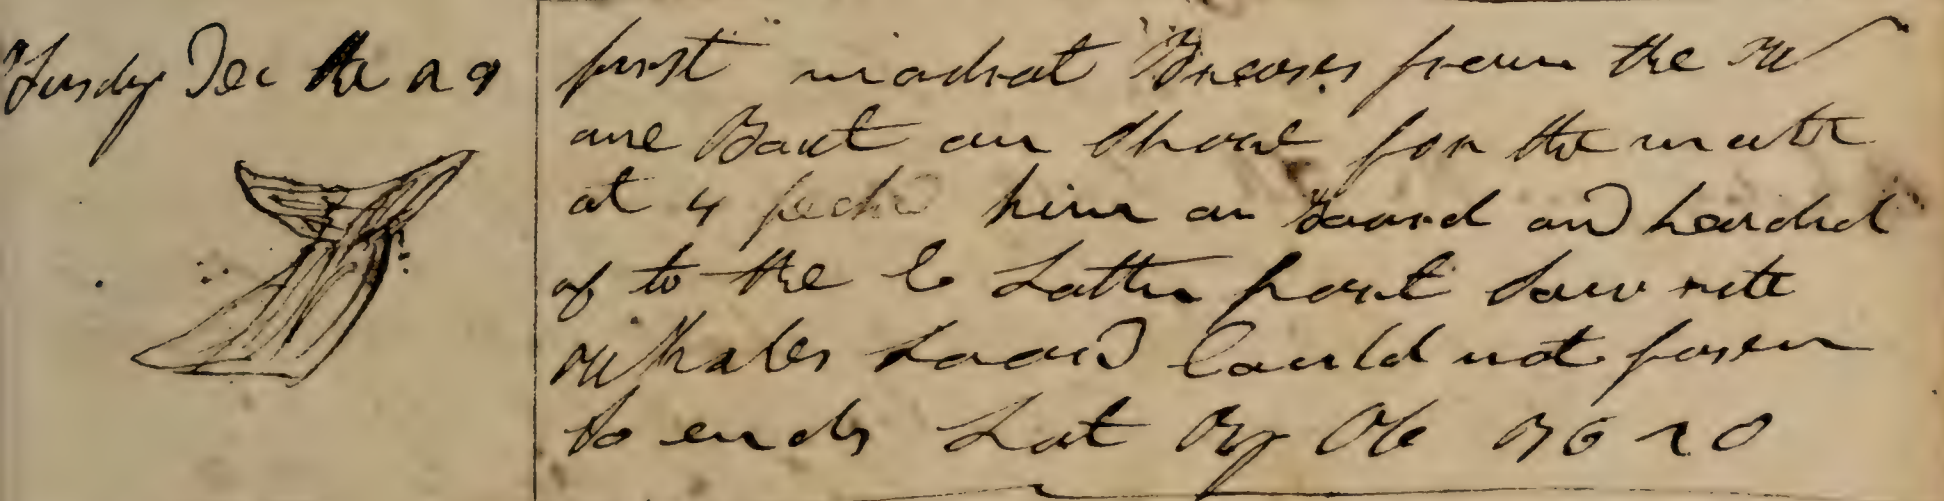 Tusdy Dec the 29
first modrat Breases from the W
one Boat on Shore for the mate
at 4 fechd him on Board and headed
of to the E Latter part Saw rite
Whales Loard Could not fasen
So ends Lat By Ob 36 20